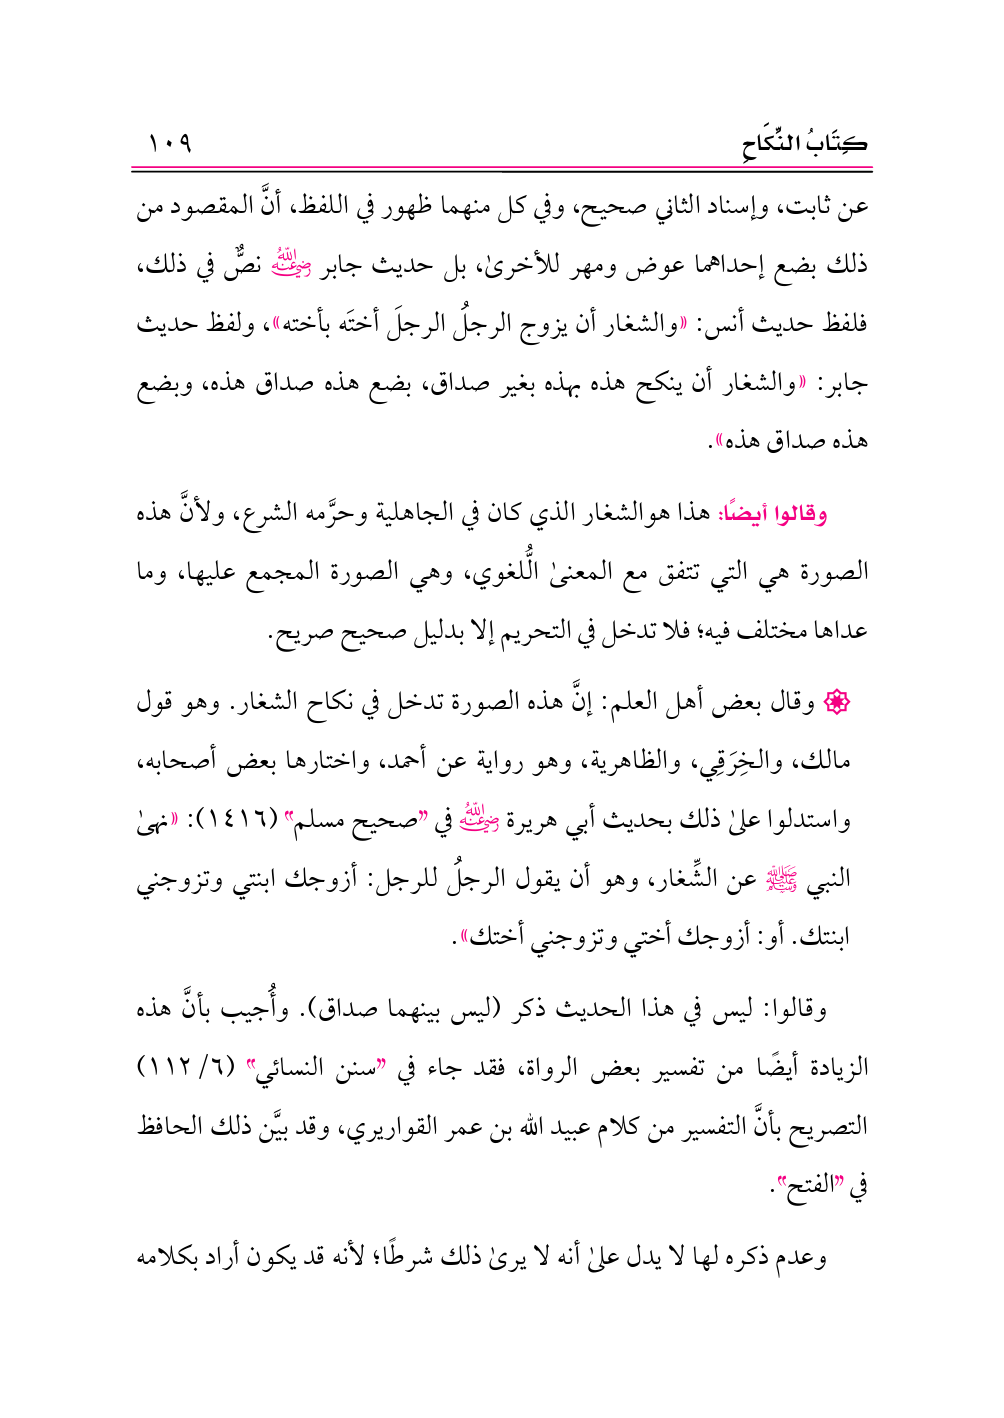 كِتَابُ النِّكَاحِ ١٠٩
عن ثابت، وإسناد الثاني صحيح، وفي كل منهما ظهور في اللفظ، أنَّ المقصود من
ذلك بضع إحداهما عوض ومهر للأخرىٰ، بل حديث جابر رضي الله عنه نصٌّ في ذلك،
فلفظ حديث أنس: «والشغار أن يزوج الرجلُ الرجلَ أختَه بأخته»، ولفظ حديث
جابر: «والشغار أن ينكح هذه بهذه بغير صداق، بضع هذه صداق هذه، وبضع
هذه صداق هذه».
وقالوا أيضًا: هذا هوالشغار الذي كان في الجاهلية وحرَّمه الشرع، ولأنَّ هذه
الصورة هي التي تتفق مع المعنىٰ الُّلغوي، وهي الصورة المجمع عليها، وما
عداها مختلف فيه؛ فلا تدخل في التحريم إلا بدليل صحيح صريح.
وقال بعض أهل العلم: إنَّ هذه الصورة تدخل في نكاح الشغار. وهو قول
مالك، والخِرَقِي، والظاهرية، وهو رواية عن أحمد، واختارها بعض أصحابه،
واستدلوا علىٰ ذلك بحديث أبي هريرة رضي الله عنه في "صحيح مسلم" (١٤١٦): «نهىٰ
النبي ﷺ عن الشِّغار، وهو أن يقول الرجلُ للرجل: أزوجك ابنتي وتزوجني
ابنتك. أو: أزوجك أختي وتزوجني أختك».
وقالوا: ليس في هذا الحديث ذكر (ليس بينهما صداق). وأُجيب بأنَّ هذه
الزيادة أيضًا من تفسير بعض الرواة، فقد جاء في "سنن النسائي" (٦/ ١١٢)
التصريح بأنَّ التفسير من كلام عبيد الله بن عمر القواريري، وقد بيَّن ذلك الحافظ
في "الفتح".
وعدم ذكره لها لا يدل علىٰ أنه لا يرىٰ ذلك شرطًا؛ لأنه قد يكون أراد بكلامه